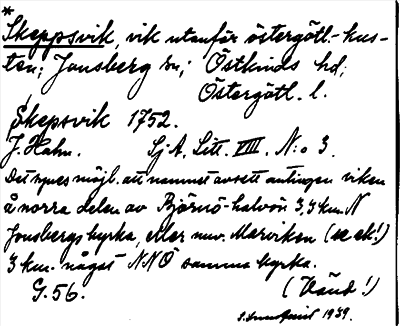 *
Skeppsvik, vik utanför östergötl.-kus-
ten; Jonsberg sn; Östkinds hd;
Östergötl. l.
Skepsvik 1752.
J. Hahn. SjA. Litt. VIII. N:o 3.
Det synes möjl. att namnet avsett antingen viken
å norra delen av Björnö-halvön 3,3 km. N
Jonsbergs kyrka, eller nuv. Marviken (se ek!)
3 km. något NNÖ samma kyrka.
G. 56. (Vänd!)
1939.